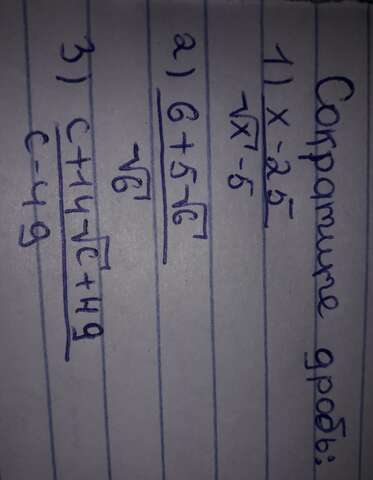 Сократите дробь:
1) x-25
√x-5
2) 6+5√6
√6
3) c+14√c+49
c-49